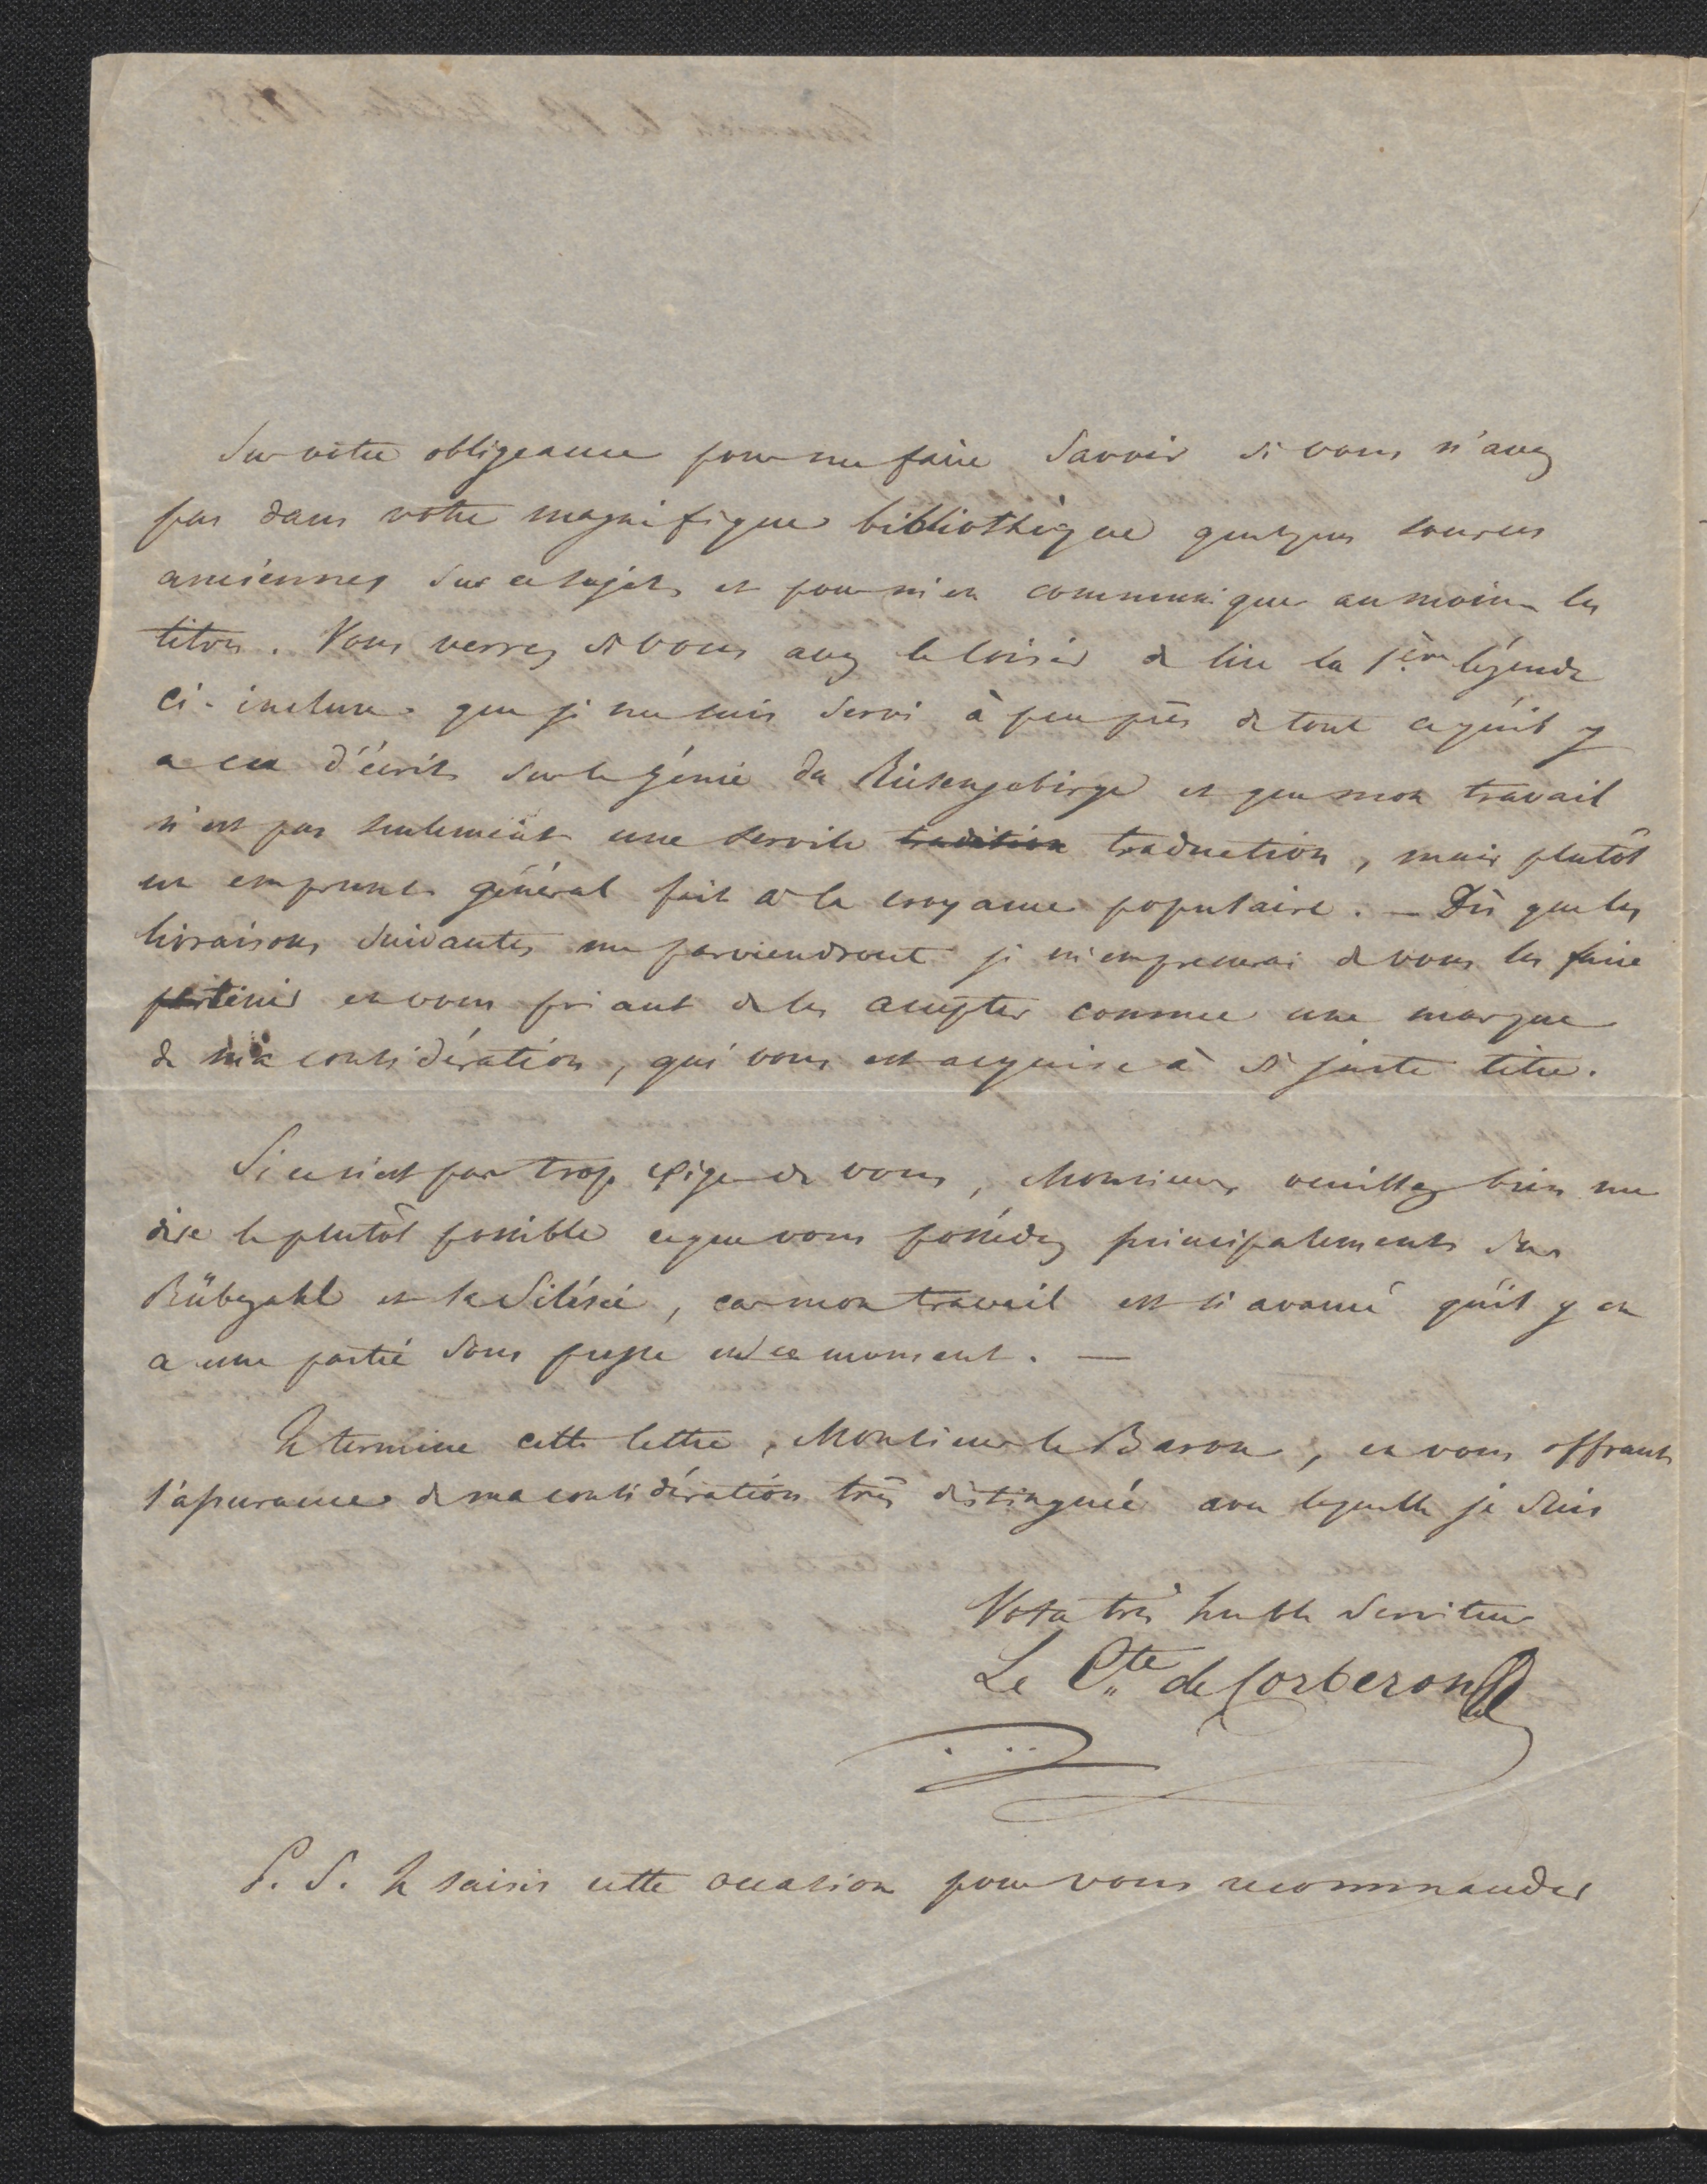 Sur votre obligeance pour me faire savoir si vous n'avez
pas dans votre magnifique bibliothèque quelques sources
anciennes sur ce sujet, et pour m'en communiquer au moins les
titres. Vous verrez si vous avez le loisir de lire la 1ère légende
ci-incluse que je me suis servi à peu près de tout ce qu'il y
a eu d'écrit sur le génie du Riesengebirge et que mon travail
n'est pas seulement une servile tradition traduction, mais plutôt
un emprunt général fait à la croyance populaire. — Dès que les
livraisons suivantes me parviendront je m'empresserai de vous les faire
parvenir en vous priant de les accepter comme une marque
de ma considération, qui vous est acquise à si juste titre.
Si ce n'est pas trop exiger de vous, Monsieur, veuillez bien me
dire le plutôt possible ce que vous possédez principalement sur
Rübezahl et la Silésie, car mon travail est si avancé qu'il y en
a une partie sous presse en ce moment. —
Je termine cette lettre, Monsieur le Baron, en vous offrant
l'assurance de ma considération très distinguée avec laquelle je suis
Votre très humble serviteur
Le Cte de Corberon
P. S. Je saisis cette occasion pour vous recommander